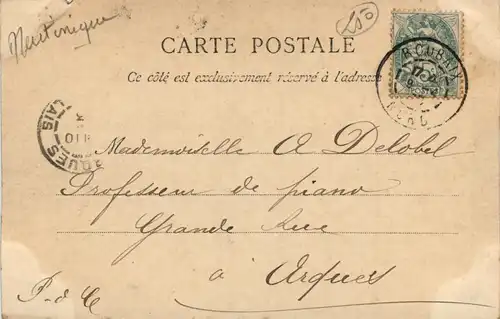 Martinique
CARTE POSTALE
Ce côté est exclusivement réservé à l'adresse
ROUBAIX
NORD
ARQUES
Mademoiselle A Delobel
Professeur de piano
Grande Rue
à Arques
P-d C